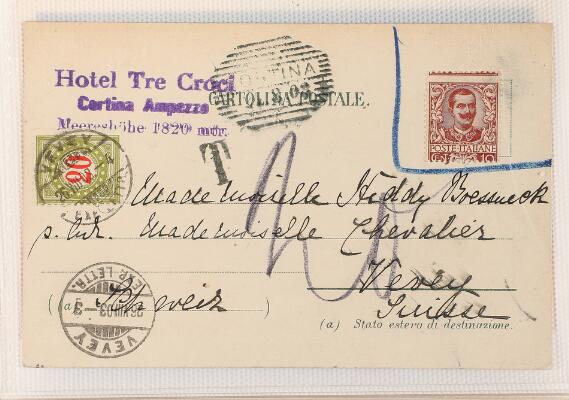 Hotel Tre Croci
Cortina Ampezzo
Meereshöhe 1820 mtr.
CORTINA
CARTOLINA POSTALE.
POSTE·ITALIANE
10
20
VEVEY
T
20
Mademoiselle Heddy
p. Adr. Mademoiselle Chevalier
Vevey
(a) Schweiz
Suisse
(a) Stato estero di destinazione.
VEVEY
26.VIII.03–3
(EXP. LETTR.)